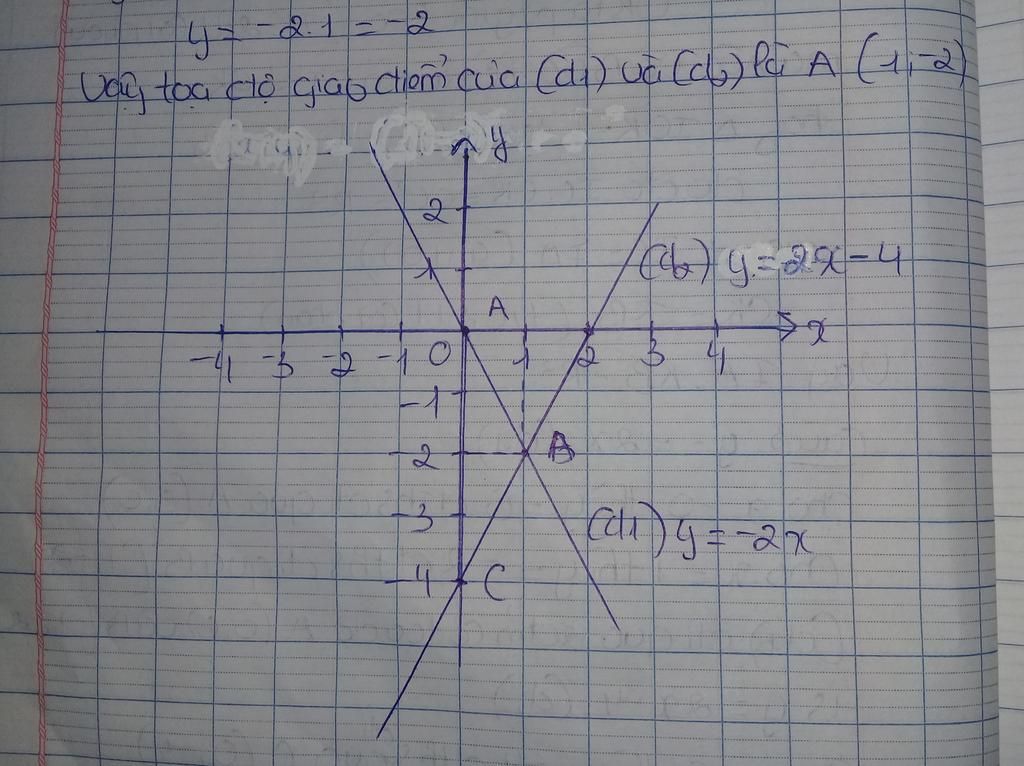 y = -2.1 = -2
Vậy toạ độ giao điểm của (d1) và (d2) là A (1;-2)
y
2
(d2) y = 2x - 4
1
A
-4 -3 -2 -1 0 1 2 3 4 x
-1
-2 B
-3
(d1) y = -2x
-4 C